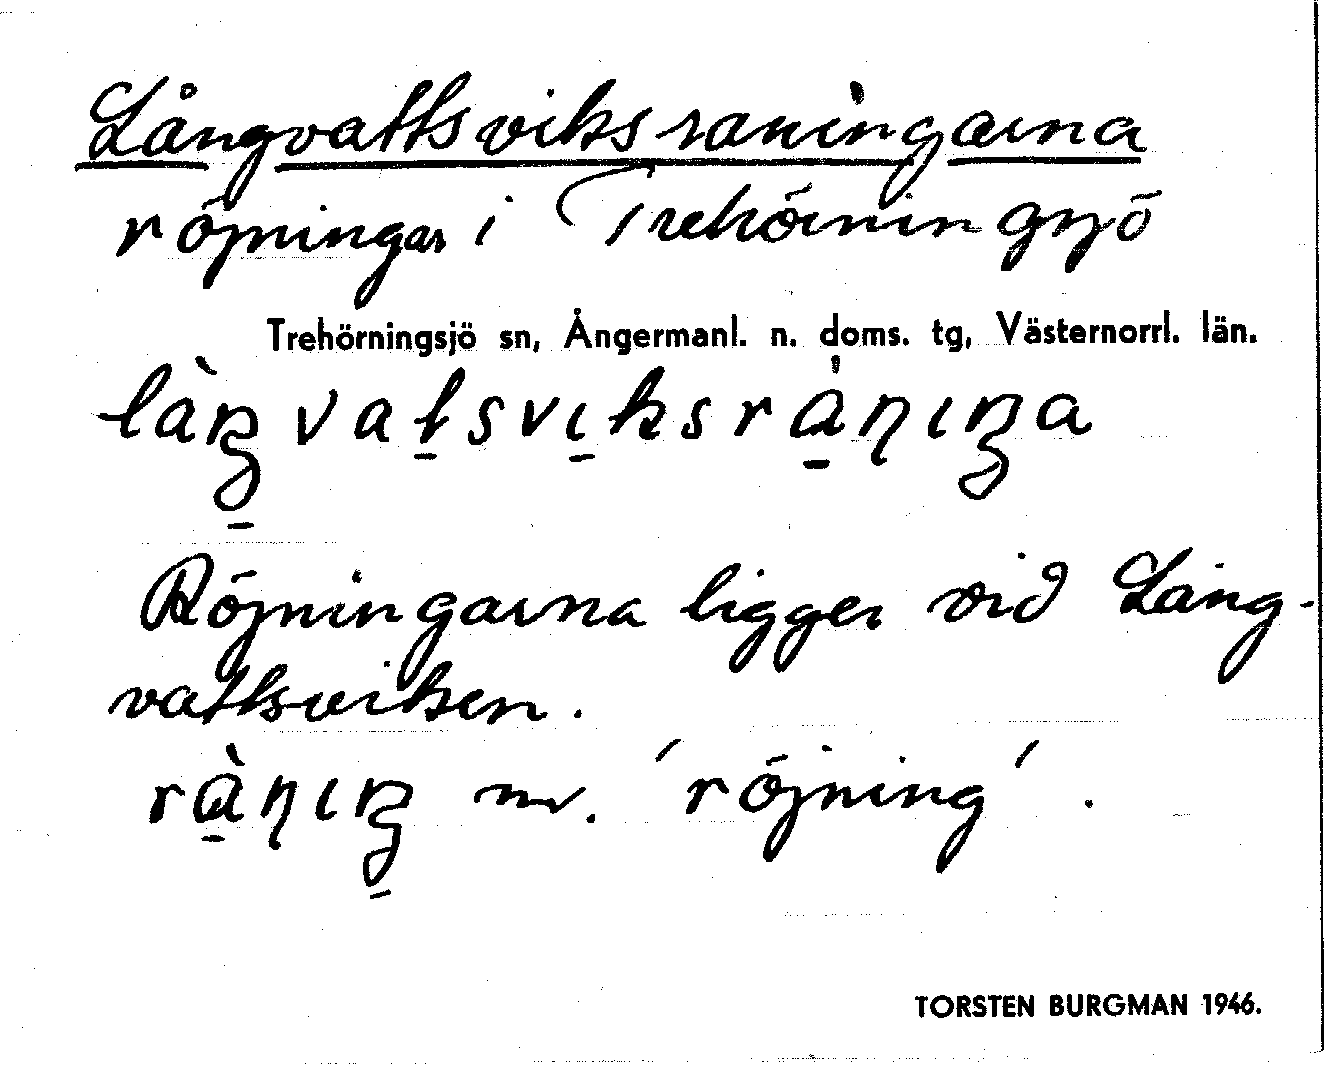 Långvattsviksraningarna
röjningar i Trehörningsjö
Trehörningsjö sn, Ångermanl. n. doms. tg, Västernorrl. län.
làŋvatsviksrànıŋa
Röjningarna ligger vid Lång-
vattsviken.
rànıŋ m. 'röjning'.
TORSTEN BURGMAN 1946.